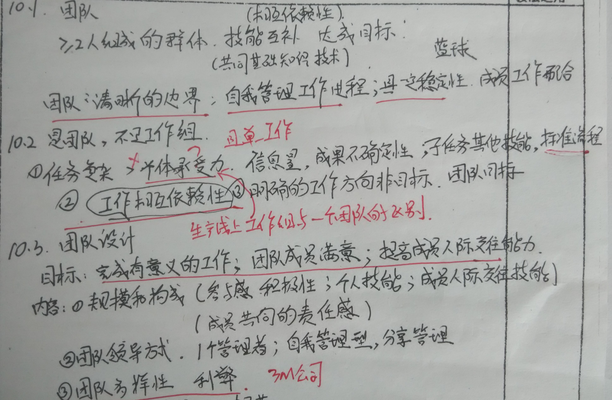 10.1. 团队 (相互依赖性).
≥2人组成的群体. 技能互补 达成同标:
(共同基础知识 技术) 蓝球
团队:清晰的边界; 自我管理工作进程; 具一定稳定性. 成员工作配合
10.2 是团队, 不是工作组. 简单工作
①任务复杂 个体承受力. 信息量, 成果不确定性, 子任务其他技能, 标准流程
② 工作相互依赖性 ③明确的工作方向非目标. 团队目标
生产线上工作组与一个团队的区别.
10.3. 团队设计
目标: 完成有意义的工作; 团队成员满意; 提高成员人际交往能力.
内容: ① 规模和构成 (参与感 积极性; 个人技能; 成员人际交往技能)
(成员共同的责任感)
②团队领导方式. 1个管理者; 自我管理型, 分享管理
③团队多样性 利弊. 3M公司